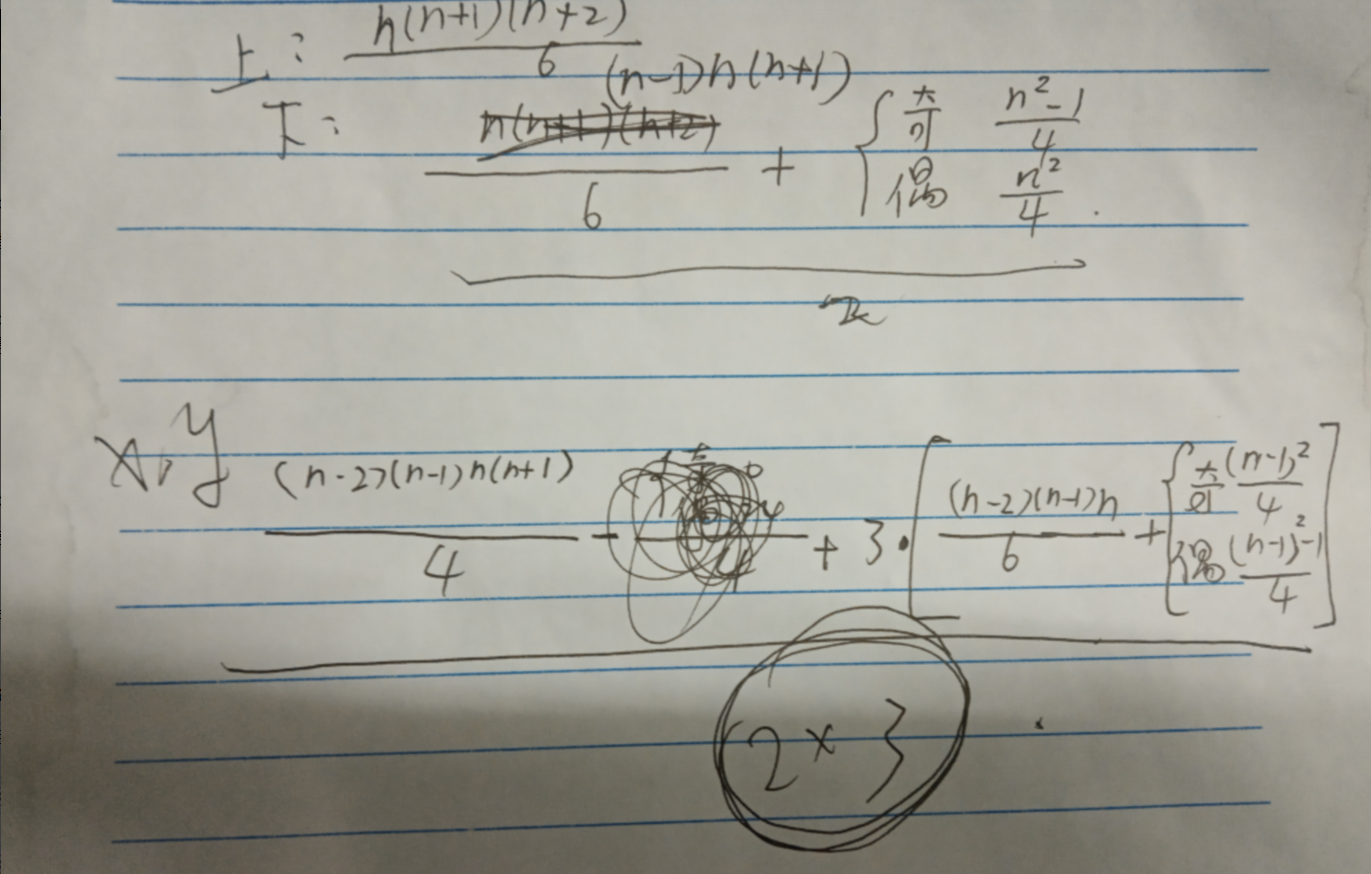 上: n(n+1)(n+2)/6
下: (n-1)n(n+1)/6 + { 奇 (n²-1)/4
偶 n²/4 .
(n-2)(n-1)n(n+1)/4 + 3·[ (n-2)(n-1)n/6 + { 奇 (n-1)²/4
偶 ((n-1)²-1)/4 ]
2×3